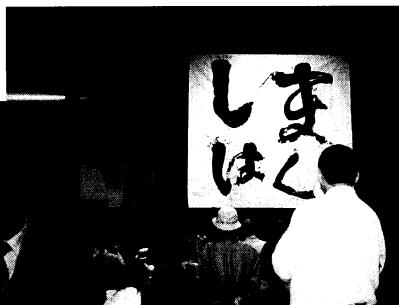 まく
しは